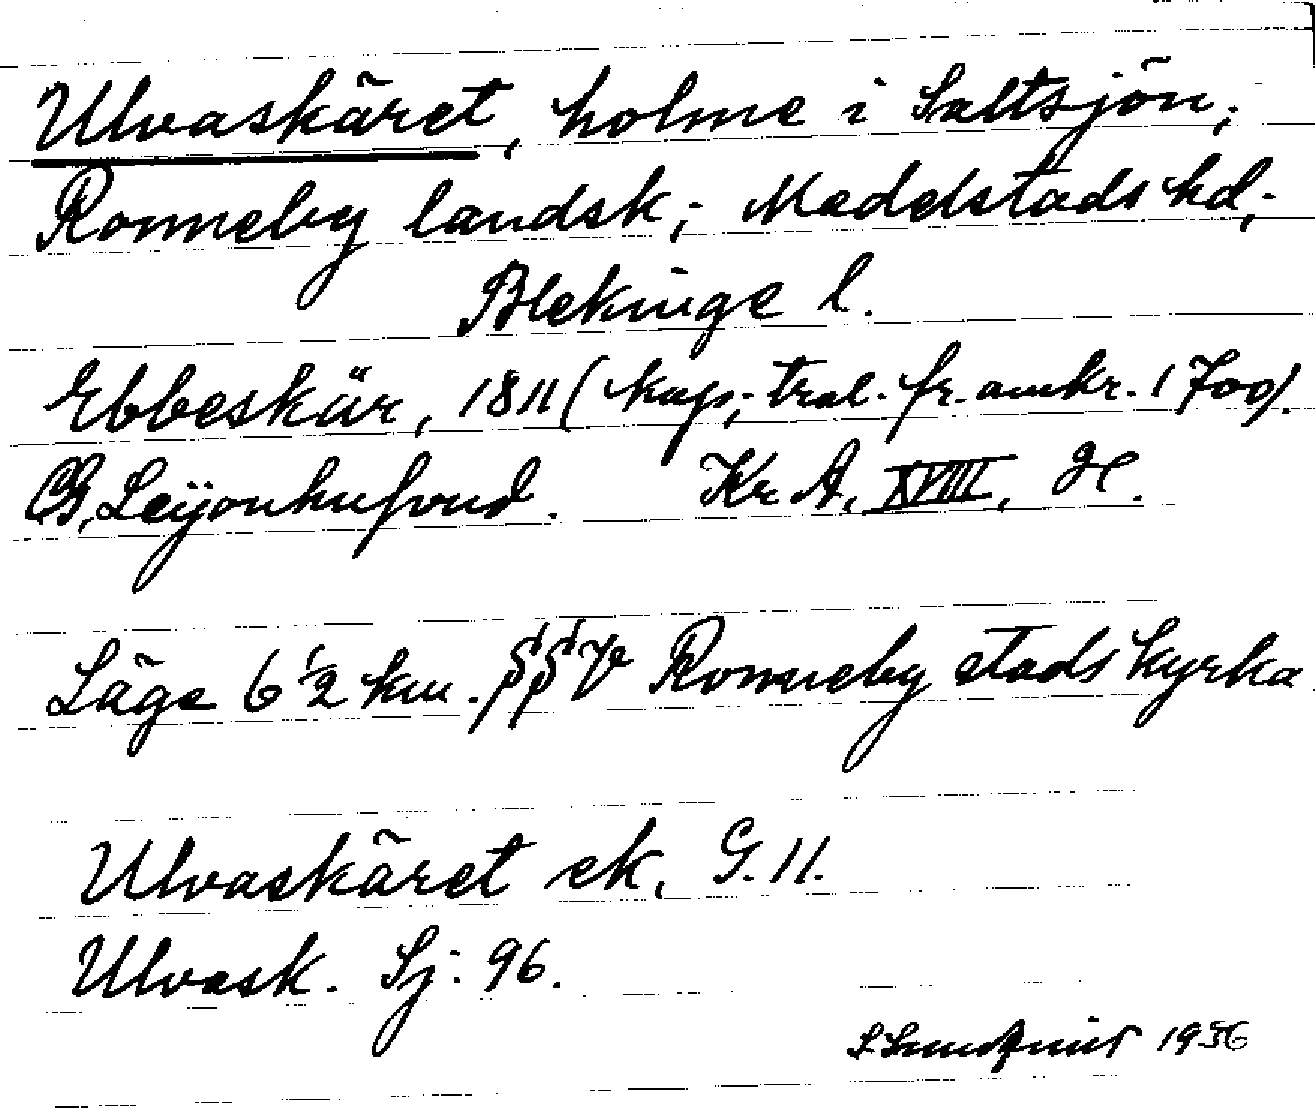 Ulvaskäret, holme i Saltsjön,
Ronneby landsk; Medelstads hd,
Blekinge l.
Ebbeskär, 1811 (kop; tral. fr. omkr. 1700).
CG, Leijonhufvud. Kr A, XVIII, H.
Läge 6 1/2 km. SSV Ronneby stads kyrka
Ulvaskäret ek. G. 11.
Ulvask. Sj: 96.
1956